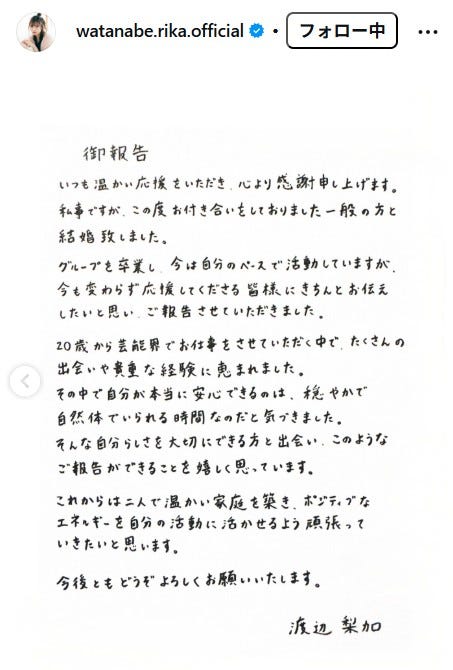 watanabe.rika.official • フォロー中 ...
御報告
いつも温かい応援をいただき、心より感謝申し上げます。
私事ですが、この度お付き合いをしておりました一般の方と
結婚致しました。
グループを卒業し、今は自分のペースで活動していますが、
今も変わらず応援してくださる皆様にきちんとお伝え
したいと思い、ご報告させていただきました。
20歳から芸能界でお仕事をさせていただく中で、たくさんの
出会いや貴重な経験に恵まれました。
その中で自分が本当に安心できるのは、穏やかで
自然体でいられる時間なのだと気づきました。
そんな自分らしさを大切にできる方と出会い、このような
ご報告ができることを嬉しく思っています。
これからは二人で温かい家庭を築き、ポジティブな
エネルギーを自分の活動に活かせるよう頑張って
いきたいと思います。
今後ともどうぞよろしくお願いいたします。
渡辺 梨加